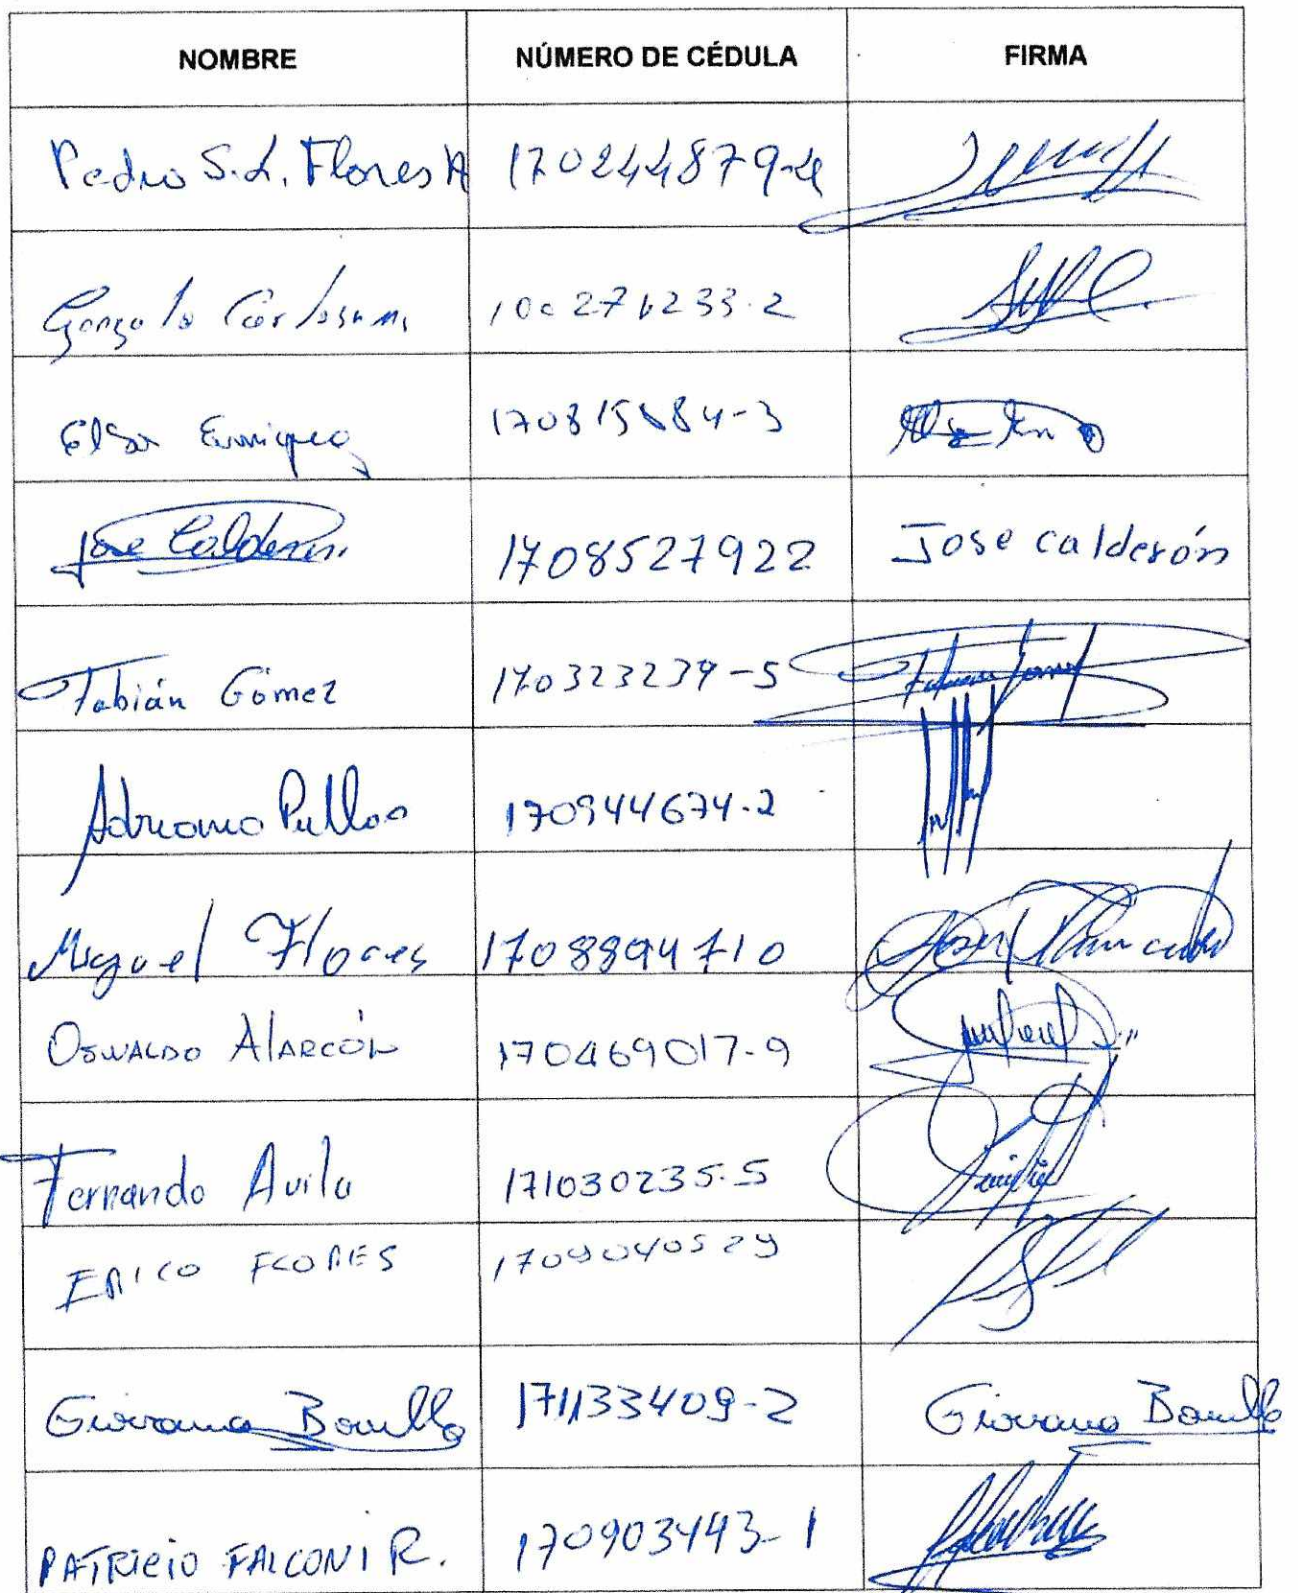 NOMBRE NÚMERO DE CÉDULA FIRMA
Pedro S.L. Flores A 170244879-4
Gonzalo 
Elsa Enriquez 170815884-3
Jose Calderón 1708527922 Jose calderón
Fabián Gómez 170323239-5
Adriana Pullas 170944674-2
Miguel Flores 1708894710
OSWALDO ALARCÓN 170469017-9
Fernando Avila 171030235-5
ERICO FLORES 1709040529
Giovana Bonilla 171133409-2 Giovana Bonilla
PATRICIO FALCONI R. 170903443-1